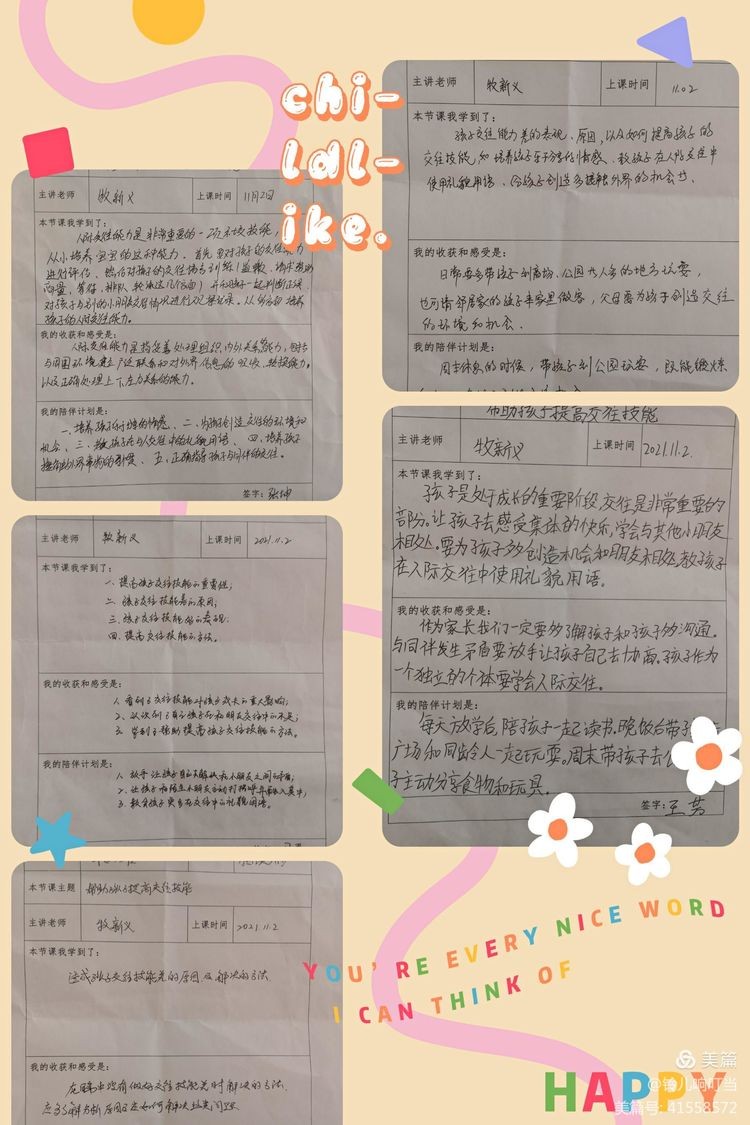 chi-
ldl-
ike.
主讲老师 牧新义 上课时间 11月2日
本节课我学到了:
人际交往能力是非常重要的一项社交技能,
从小培养宝宝的这种能力。首先要对孩子的交往能力
对孩子与别的小朋友交往情况进行观察记录。
孩子的人际交往能力。
我的收获和感受是:
人际交往能力是指妥善处理组织内外关系的能力,
与周围环境建立广泛联系和对外界信息的吸收、转换能力,
以及正确处理上下左右关系的能力。
我的陪伴计划是:
一、培养孩子乐于分享的情感、二、为孩子创造交往的环境和
机会、三、教孩子在与人交往中的礼貌用语、四、培养孩子
五、正确指导孩子与同伴的交往。
签字:张坤
主讲老师 牧新义 上课时间 11.02
本节课我学到了:
孩子交往能力差的表现、原因,以及如何提高孩子的
交往技能,如培养孩子乐于分享的情感、教孩子在人际交往中
使用礼貌用语、给孩子创造多接触外界的机会等。
我的收获和感受是:
日常要多带孩子到商场、公园等人多的地方玩耍,
也可请邻居家的孩子来家里做客,父母要为孩子创造交往
的环境和机会。
我的陪伴计划是:
周末休息的时候,带孩子到公园玩耍,既能锻炼
主讲老师 牧新义 上课时间 2021.11.2
本节课我学到了:
一、提高孩子交往技能的重要性;
二、孩子交往技能差的原因;
三、孩子交往技能差的表现;
四、提高交往技能的方法。
我的收获和感受是:
1、看到了交往技能对孩子成长的重大影响;
2、认识到了自己孩子在和朋友交往中的不足;
3、学到了帮助提高孩子交往技能的方法。
我的陪伴计划是:
1、放手让孩子自己去解决和小朋友之间的矛盾;
3、教育孩子更多在交往中的礼貌用语。
帮助孩子提高交往技能
主讲老师 牧新义 上课时间 2021.11.2.
本节课我学到了:
孩子是处于成长的重要阶段,交往是非常重要的
部分。让孩子去感受集体的快乐,学会与其他小朋友
相处。要为孩子多创造机会和朋友相处,教孩子
在人际交往中使用礼貌用语。
我的收获和感受是:
作为家长我们一定要多了解孩子和孩子多沟通。
与同伴发生矛盾要放手让孩子自己去协商。孩子作为
一个独立的个体要学会人际交往。
我的陪伴计划是:
每天放学后,陪孩子一起读书。晚饭后带
广场和同龄人一起玩耍。周末带孩子去
子主动分享食物和玩具。
签字:王芳
本节课主题 帮助孩子提高交往技能
主讲老师 牧新义 上课时间 2021.11.2
本节课我学到了:
造成孩子交往技能差的原因及解决的方法.
我的收获和感受是:
YOU'RE EVERY NICE WORD
I CAN THINK OF
HAPPY
美篇
@铃儿响叮当
美篇号: 41558572